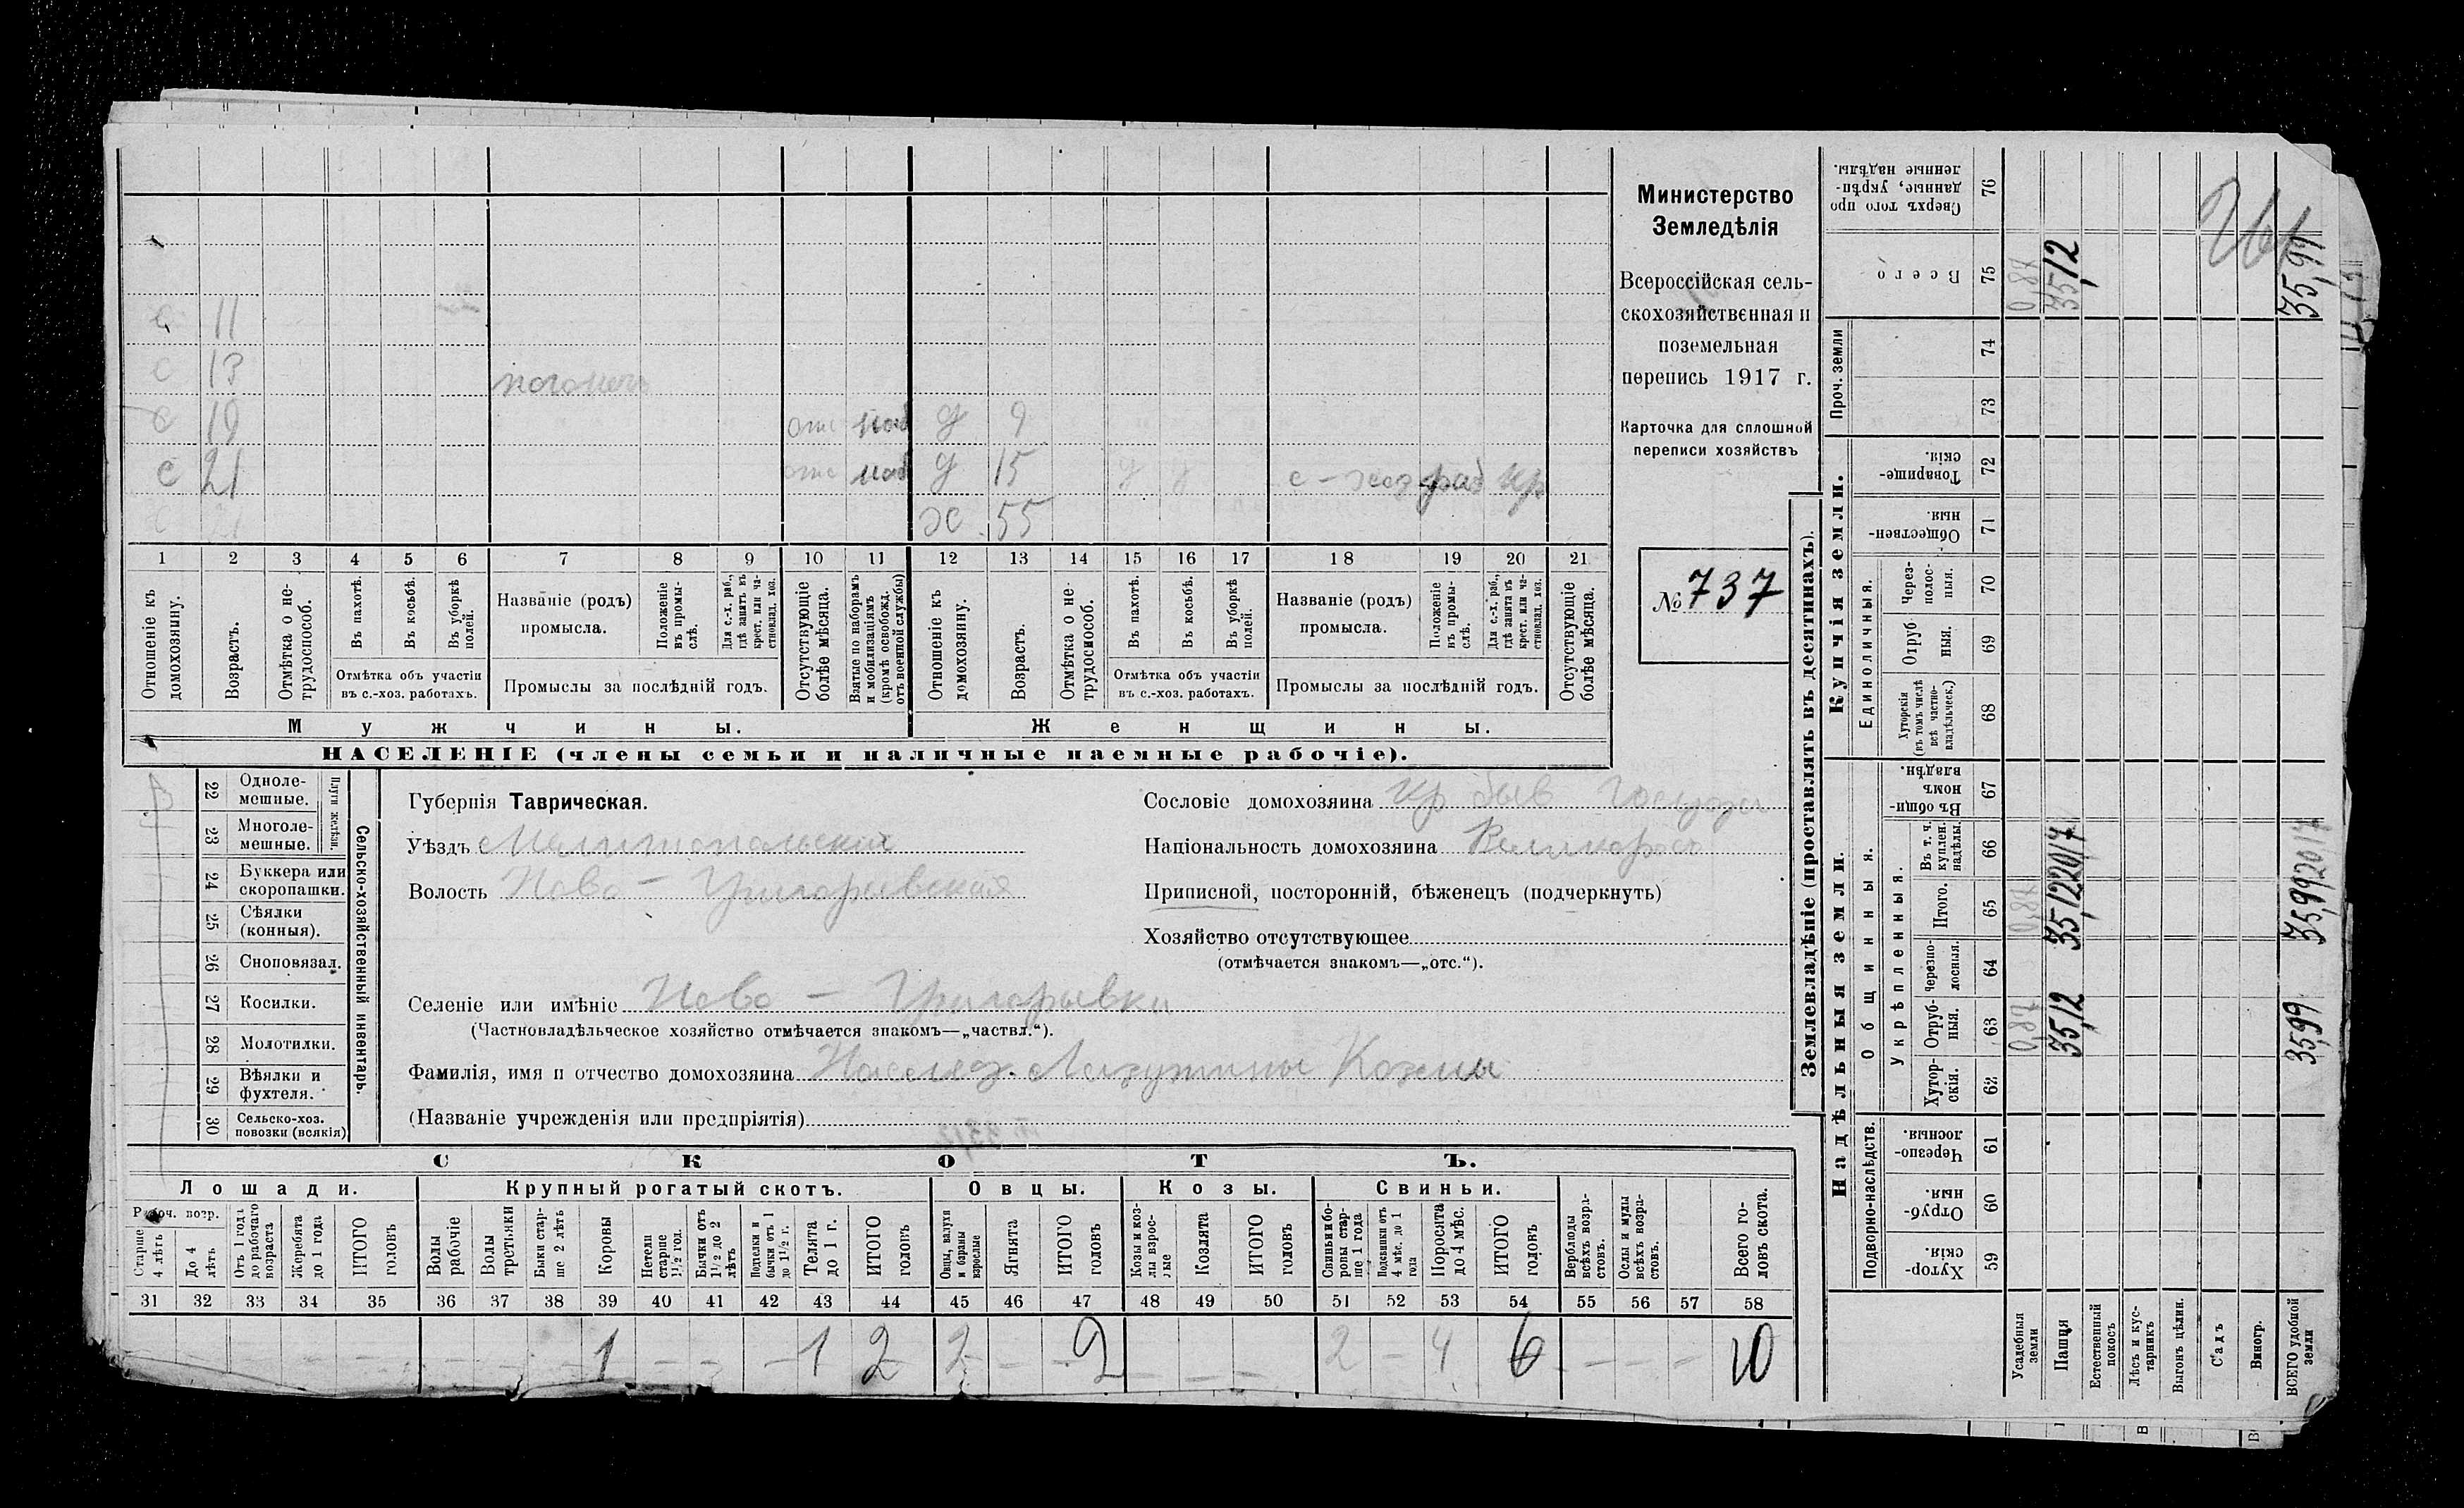 с 11
с 13 погонич
с 19 отс моб д 9
с 21 отс моб д 15 у у с-хоз раб кр
ж 55
1 2 3 4 5 6 7 8 9 10 11 12 13 14 15 16 17 18 19 20 21
Отношеніе къ домохозяину.
Возрастъ.
Отмѣтка о нетрудоспособ.
Въ пахотѣ.
Въ косьбѣ.
Въ уборкѣ полей.
Отмѣтка объ участіи въ с.-хоз. работахъ.
Названіе (родъ) промысла.
Положеніе въ промыслѣ.
Для с.-х. раб., гдѣ занятъ въ крест. или частновлад. хоз.
Промыслы за послѣдній годъ.
Отсутствующіе болѣе мѣсяца.
Взятые по наборамъ и мобилизаціямъ (кромѣ освобожд. отъ военной службы)
Отношеніе къ домохозяину.
Возрастъ.
Отмѣтка о нетрудоспособ.
Въ пахотѣ.
Въ косьбѣ.
Въ уборкѣ полей.
Отмѣтка объ участіи въ с.-хоз. работахъ.
Названіе (родъ) промысла.
Положеніе въ промыслѣ.
Для с.-х. раб., гдѣ занята въ крест. или частновлад. хоз.
Промыслы за послѣдній годъ.
Отсутствующіе болѣе мѣсяца.
Мужчины.
Женщины.
НАСЕЛЕНІЕ (члены семьи и наличные наемные рабочіе).
Министерство
Земледѣлія
Всероссійская сель-
скохозяйственная и
поземельная
перепись 1917 г.
Карточка для сплошной
переписи хозяйствъ
№ 737
Сельско-хозяйственный инвентарь.
Плуги желѣзн.
22 Одноле-
мешные.
23 Многоле-
мешные.
24 Буккера или
скоропашки.
25 Сѣялки
(конныя).
26 Сноповязал.
27 Косилки.
28 Молотилки.
29 Вѣялки и
фухтеля.
30 Сельско-хоз.
повозки (всякія)
Губернія Таврическая.
Уѣздъ Мелитопольскій
Волость Ново-Григорьевская
Селеніе или имѣніе Ново-Григорьевка
(Частновладѣльческое хозяйство отмѣчается знакомъ—„частвл.“).
Фамилія, имя и отчество домохозяина Наслед.  Козмы
(Названіе учрежденія или предпріятія)
Сословіе домохозяина кр быв Государ
Національность домохозяина Великоросъ
Приписной, посторонній, бѣженецъ (подчеркнуть)
Хозяйство отсутствующее
(отмѣчается знакомъ—„отс.“).
СКОТЪ.
Лошади.
Крупный рогатый скотъ.
Овцы.
Козы.
Свиньи.
Рабоч. возр.
Старше 4 лѣтъ
До 4 лѣтъ
Отъ 1 года до рабочаго возраста
Жеребята до 1 года
ИТОГО головъ
Волы рабочіе
Волы третьяки
Быки старше 2 лѣтъ
Коровы
Нетели старше 1½ год.
Бычки отъ 1½ до 2 лѣтъ
Подтелки и бычки отъ 1 до 1½ г.
Телята до 1 г.
ИТОГО головъ
Овцы, валухи и бараны взрослые
Ягнята
ИТОГО головъ
Козы и козлы взрослые
Козлята
ИТОГО головъ
Свиньи и боровы старше 1 года
Подсвинки отъ 4 мѣс. до 1 года
Поросята до 4 мѣс.
ИТОГО головъ
Верблюды всѣхъ возрастовъ.
Ослы и мулы всѣхъ возрастовъ.
Всего головъ скота.
31 32 33 34 35 36 37 38 39 40 41 42 43 44 45 46 47 48 49 50 51 52 53 54 55 56 57 58
— — — — — — — — 1 — — — 1 2 2 — 2 — — — 2 — 4 6 — — — 10
Землевладѣніе (проставлять въ десятинахъ).
Надѣльныя земли.
Купчія земли.
Проч. земли
Подворно-наслѣдств.
Общинныя.
Укрѣпленныя.
Единоличныя.
Хуторскія. 59
Отрубныя. 60
Черезполосныя. 61
Хуторскія. 62
Отрубныя. 63
Черезполосныя. 64
Итого. 65
Въ т. ч. куплен. надѣлы. 66
Въ общинномъ владѣн. 67
Хуторскія (въ томъ числѣ всѣ частновладѣльческ.) 68
Отрубныя. 69
Черезполосныя. 70
Общественныя. 71
Товарищескія. 72
73
74
Всего 75
Сверхъ того проданные, укрѣпленные надѣлы. 76
Усадебныя земли 0,87 0,87 0,87
Пашня 35,12 35,12 20,17 35,12
Естественный покосъ
Лѣсъ и кустарникъ
Выгонъ цѣлин.
Садъ
Виногр.
ВСЕГО удобной земли 35,99 35,99 20,17 35,99